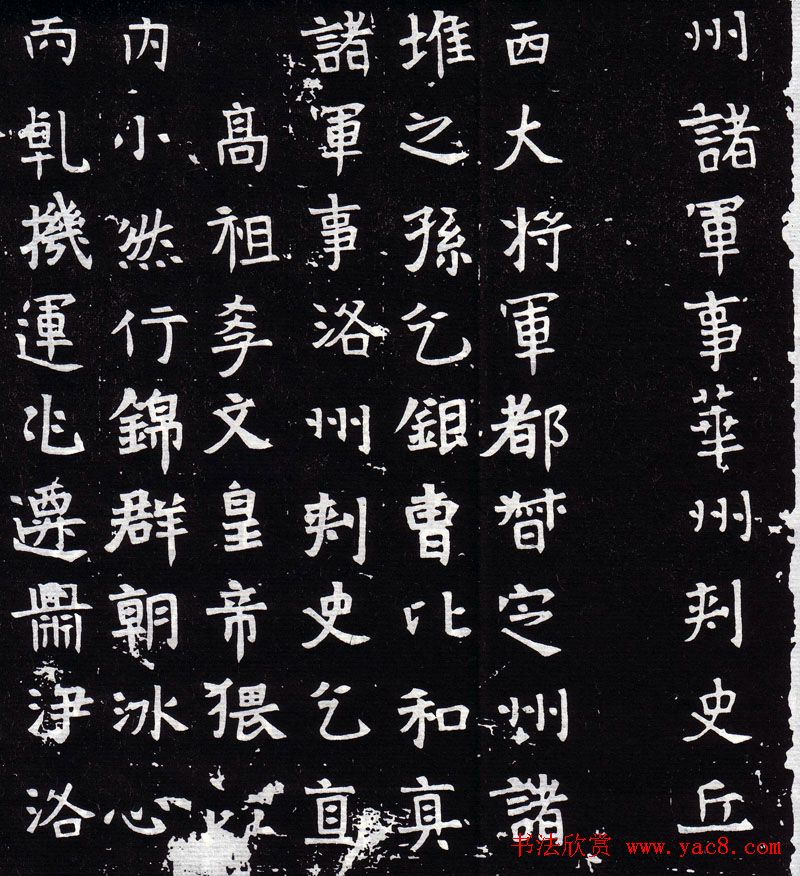 州諸軍事華州刾史丘
西大將軍都督定州諸
堆之孫乞銀曹比和真
諸軍事洛州刾史乞直
高祖孝文皇帝猥
内小然行錦群朝冰心
丙乹機運兆遷鼎洢洛
书法欣赏 www.yac8.com